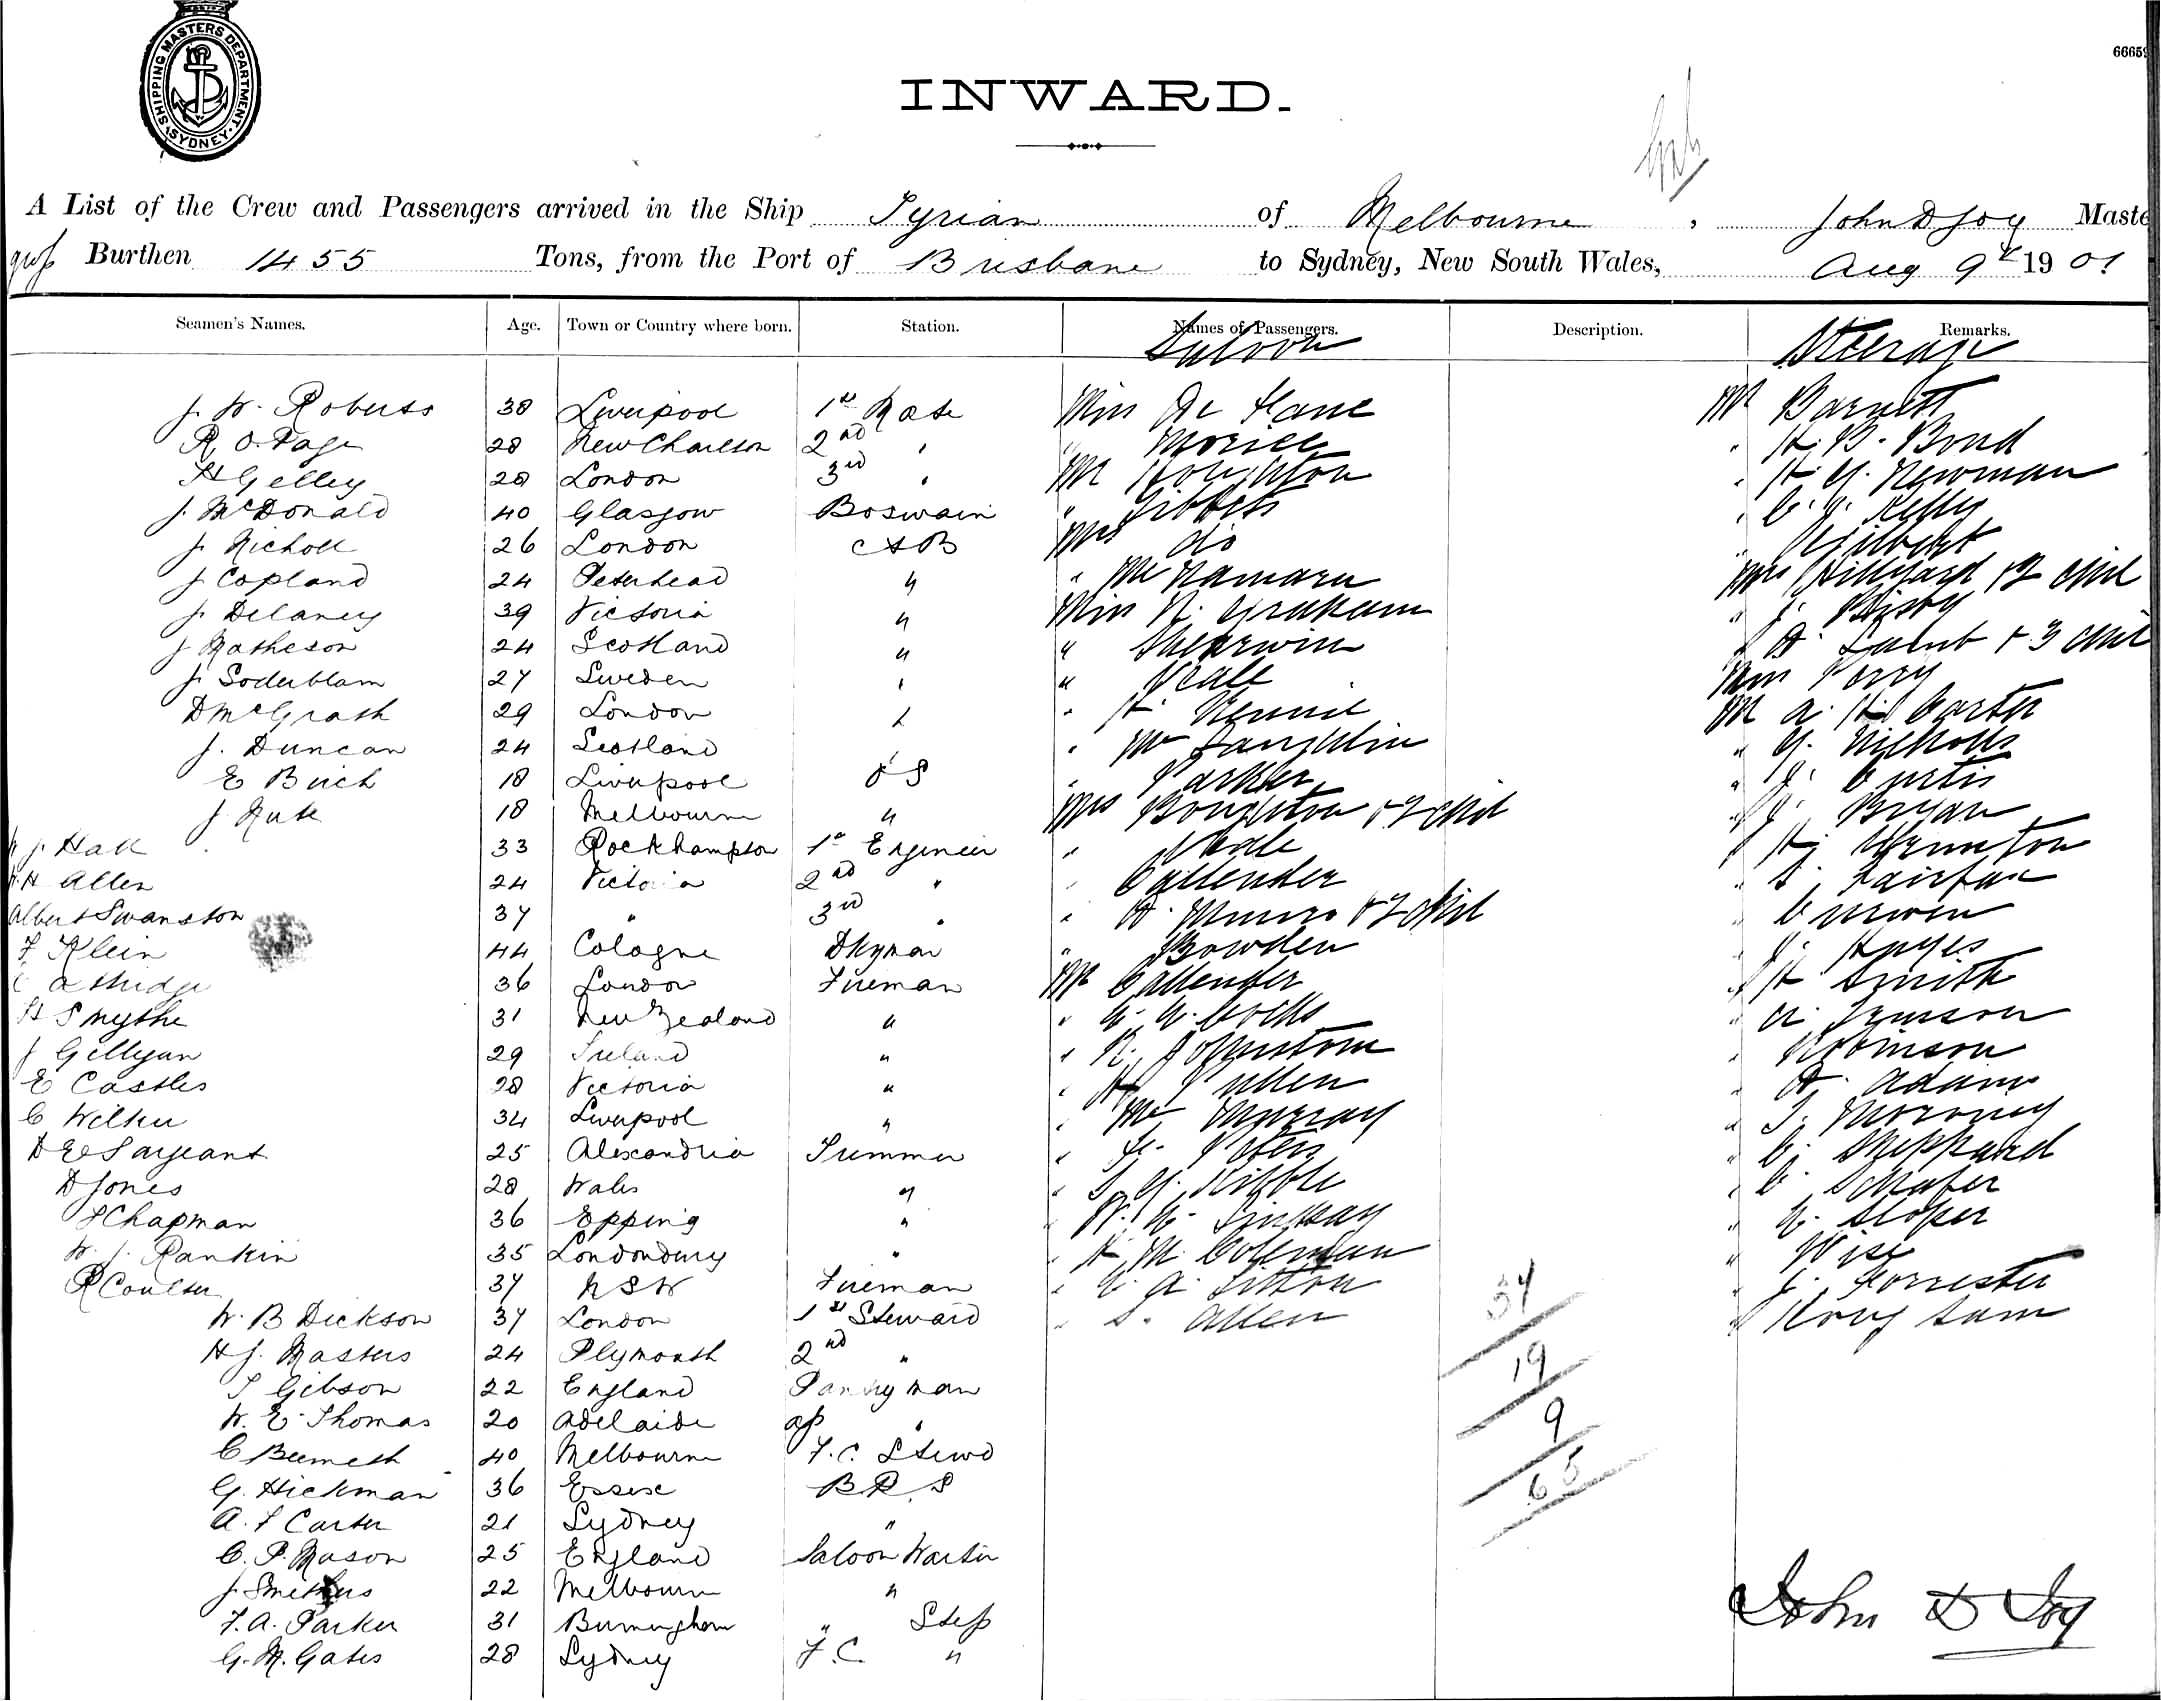 SHIPPING MASTERS DEPARTMENT. SYDNEY.
INWARD.
A List of the Crew and Passengers arrived in the Ship Tyrian of Melbourne, John D Joy Maste
Burthen 1455 Tons, from the Port of Brisbane to Sydney, New South Wales, Aug 9th 1901
Seamen's Names. Age. Town or Country where born. Station. Names of Passengers. Description. Remarks.
Saloon Steerage
J. W. Roberts 38 Liverpool 1st Mate Miss De Lane Mr Barnett
R. O. Page 28 New Charlton 2nd " " H. B. Bond
H Gelley 28 London 3rd " Mr Houghton " H. G. Newman
J. McDonald 40 Glasgow Boswain " Gibbes " C. J. Kelly
J. Nicholl 26 London AB Mrs do " Gilbert
J Copland 24 Peterhead " " McNamara Mrs Hilliard & 2 chil
J. Delaney 39 Victoria " Miss N. Graham " J.
J Matheson 24 Scotland " " Shearwin " A. Lamb & 3 chil
J. Soderblam 27 Sweden " " Neale Miss Perry
D McGrath 29 London " " H. Rennie Mr A. H. Carter
J. Duncan 24 Scotland " " McLaughlin " G. Nicholls
E Birch 18 Liverpool OS " Parker " J. Curtis
J. Rute 18 Melbourne " Mrs Boughton & 2 chil " J. Bryan
J. Hall 33 Rockhampton 1st Engineer " Neale "
H Allen 24 Victoria 2nd " " Callender " S. Fairfax
Albert Swanston 37 " 3rd " " A. Munro & 2 chil " Curwen
F Klein 44 Cologne Dkyman " Bowden " J. Hayes
36 London Fireman Mr Callender " H Smith
H Smythe 31 New Zealand " " "
J Gillgan 29 Ireland " " " Robinson
E Castles 28 Victoria " " Pullen " A. Adams
C Wilkie 34 Liverpool " " McMurray " T. Moroney
D E Sargeant 25 Alexandria Trimmer " Peters " C. Sheppard
D Jones 28 Wales " " "
F Chapman 36 Epping " " W. G. Lindsay " G. Sloper
W. J. Rankin 35 Londonderry " " H. M. Coleman " Wise
R Coulter 37 NSW Fireman " C. A. Sitton " J. Forrester
W. B Dickson 37 London 1st Steward " S. Allen " Kong Sam
H J. Masters 24 Plymouth 2nd "
T Gibson 22 England Pantryman
W. E. Thomas 20 Adelaide "
C 40 Melbourne F. C. Stewd
G. Hickman 36 Essex B R S
A. F Carter 21 Sydney "
C. P. Mason 25 England Saloon Waiter
J. 22 Melbourne "
F. A. Parker 31 Birmingham "
G. M. Gates 28 Sydney F. C "
37
19
9
65
John D Joy